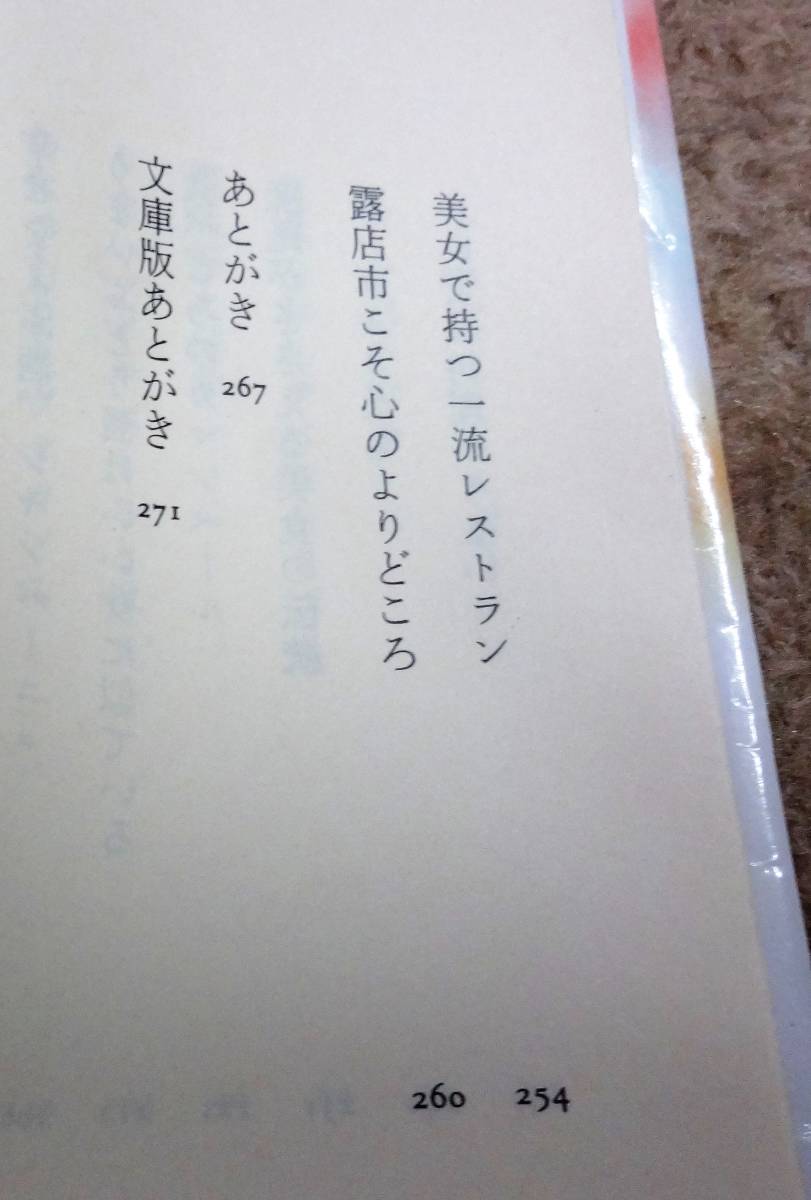 美女で持つ一流レストラン 254
露店市こそ心のよりどころ 260
あとがき 267
文庫版あとがき 271